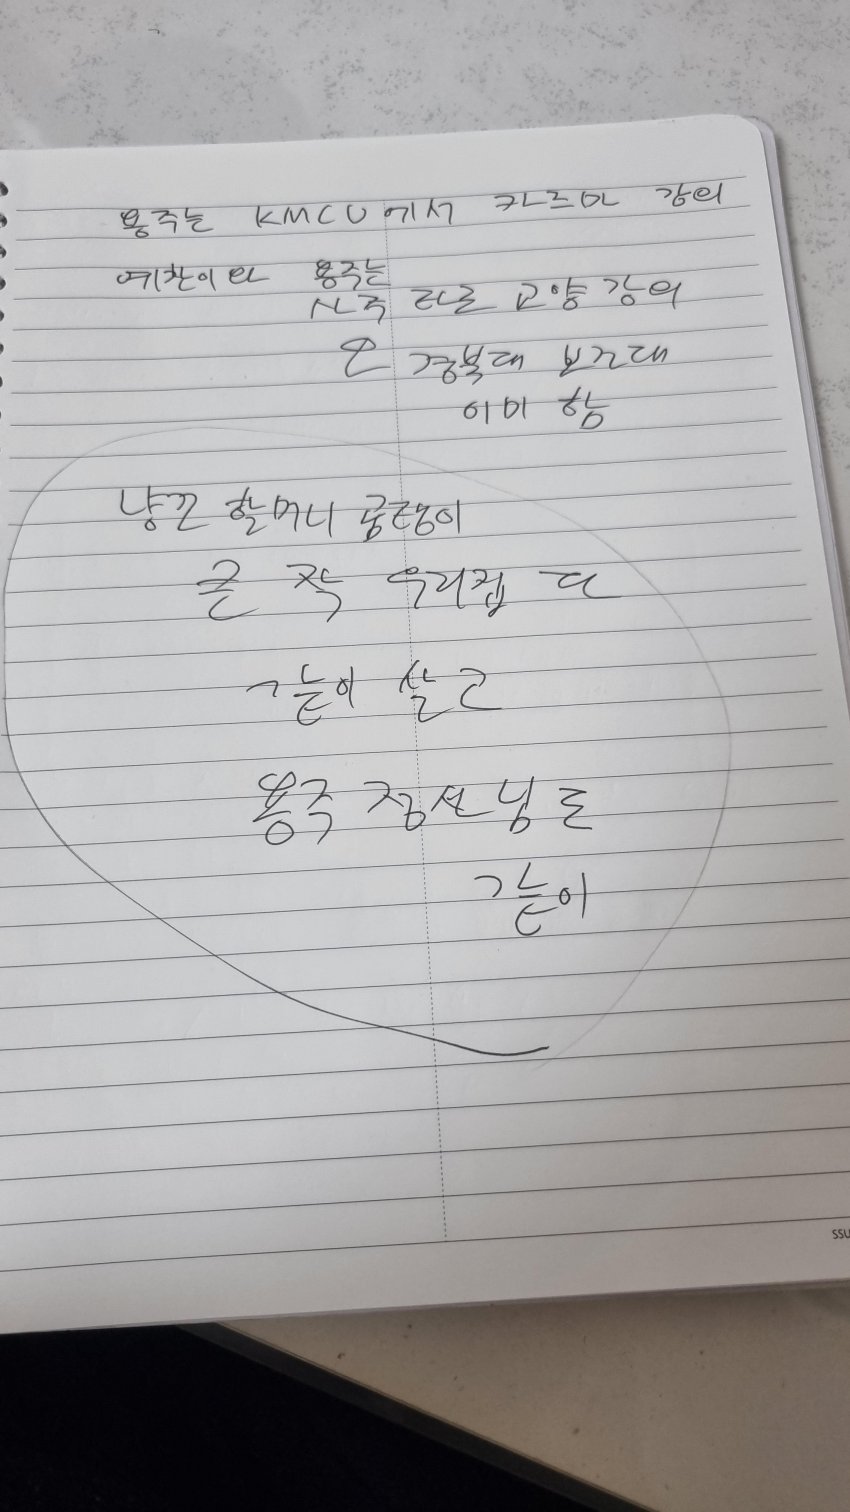 용주는 KMCU에서 카르마 강의
예찬이와 용주는
사주 타로 교양 강의
온 경북대 보건대
이미 함
냥끈 할머니 콩랭이
큰 작 우리집 다
같이 살고
용주 점선님도
같이
SSU